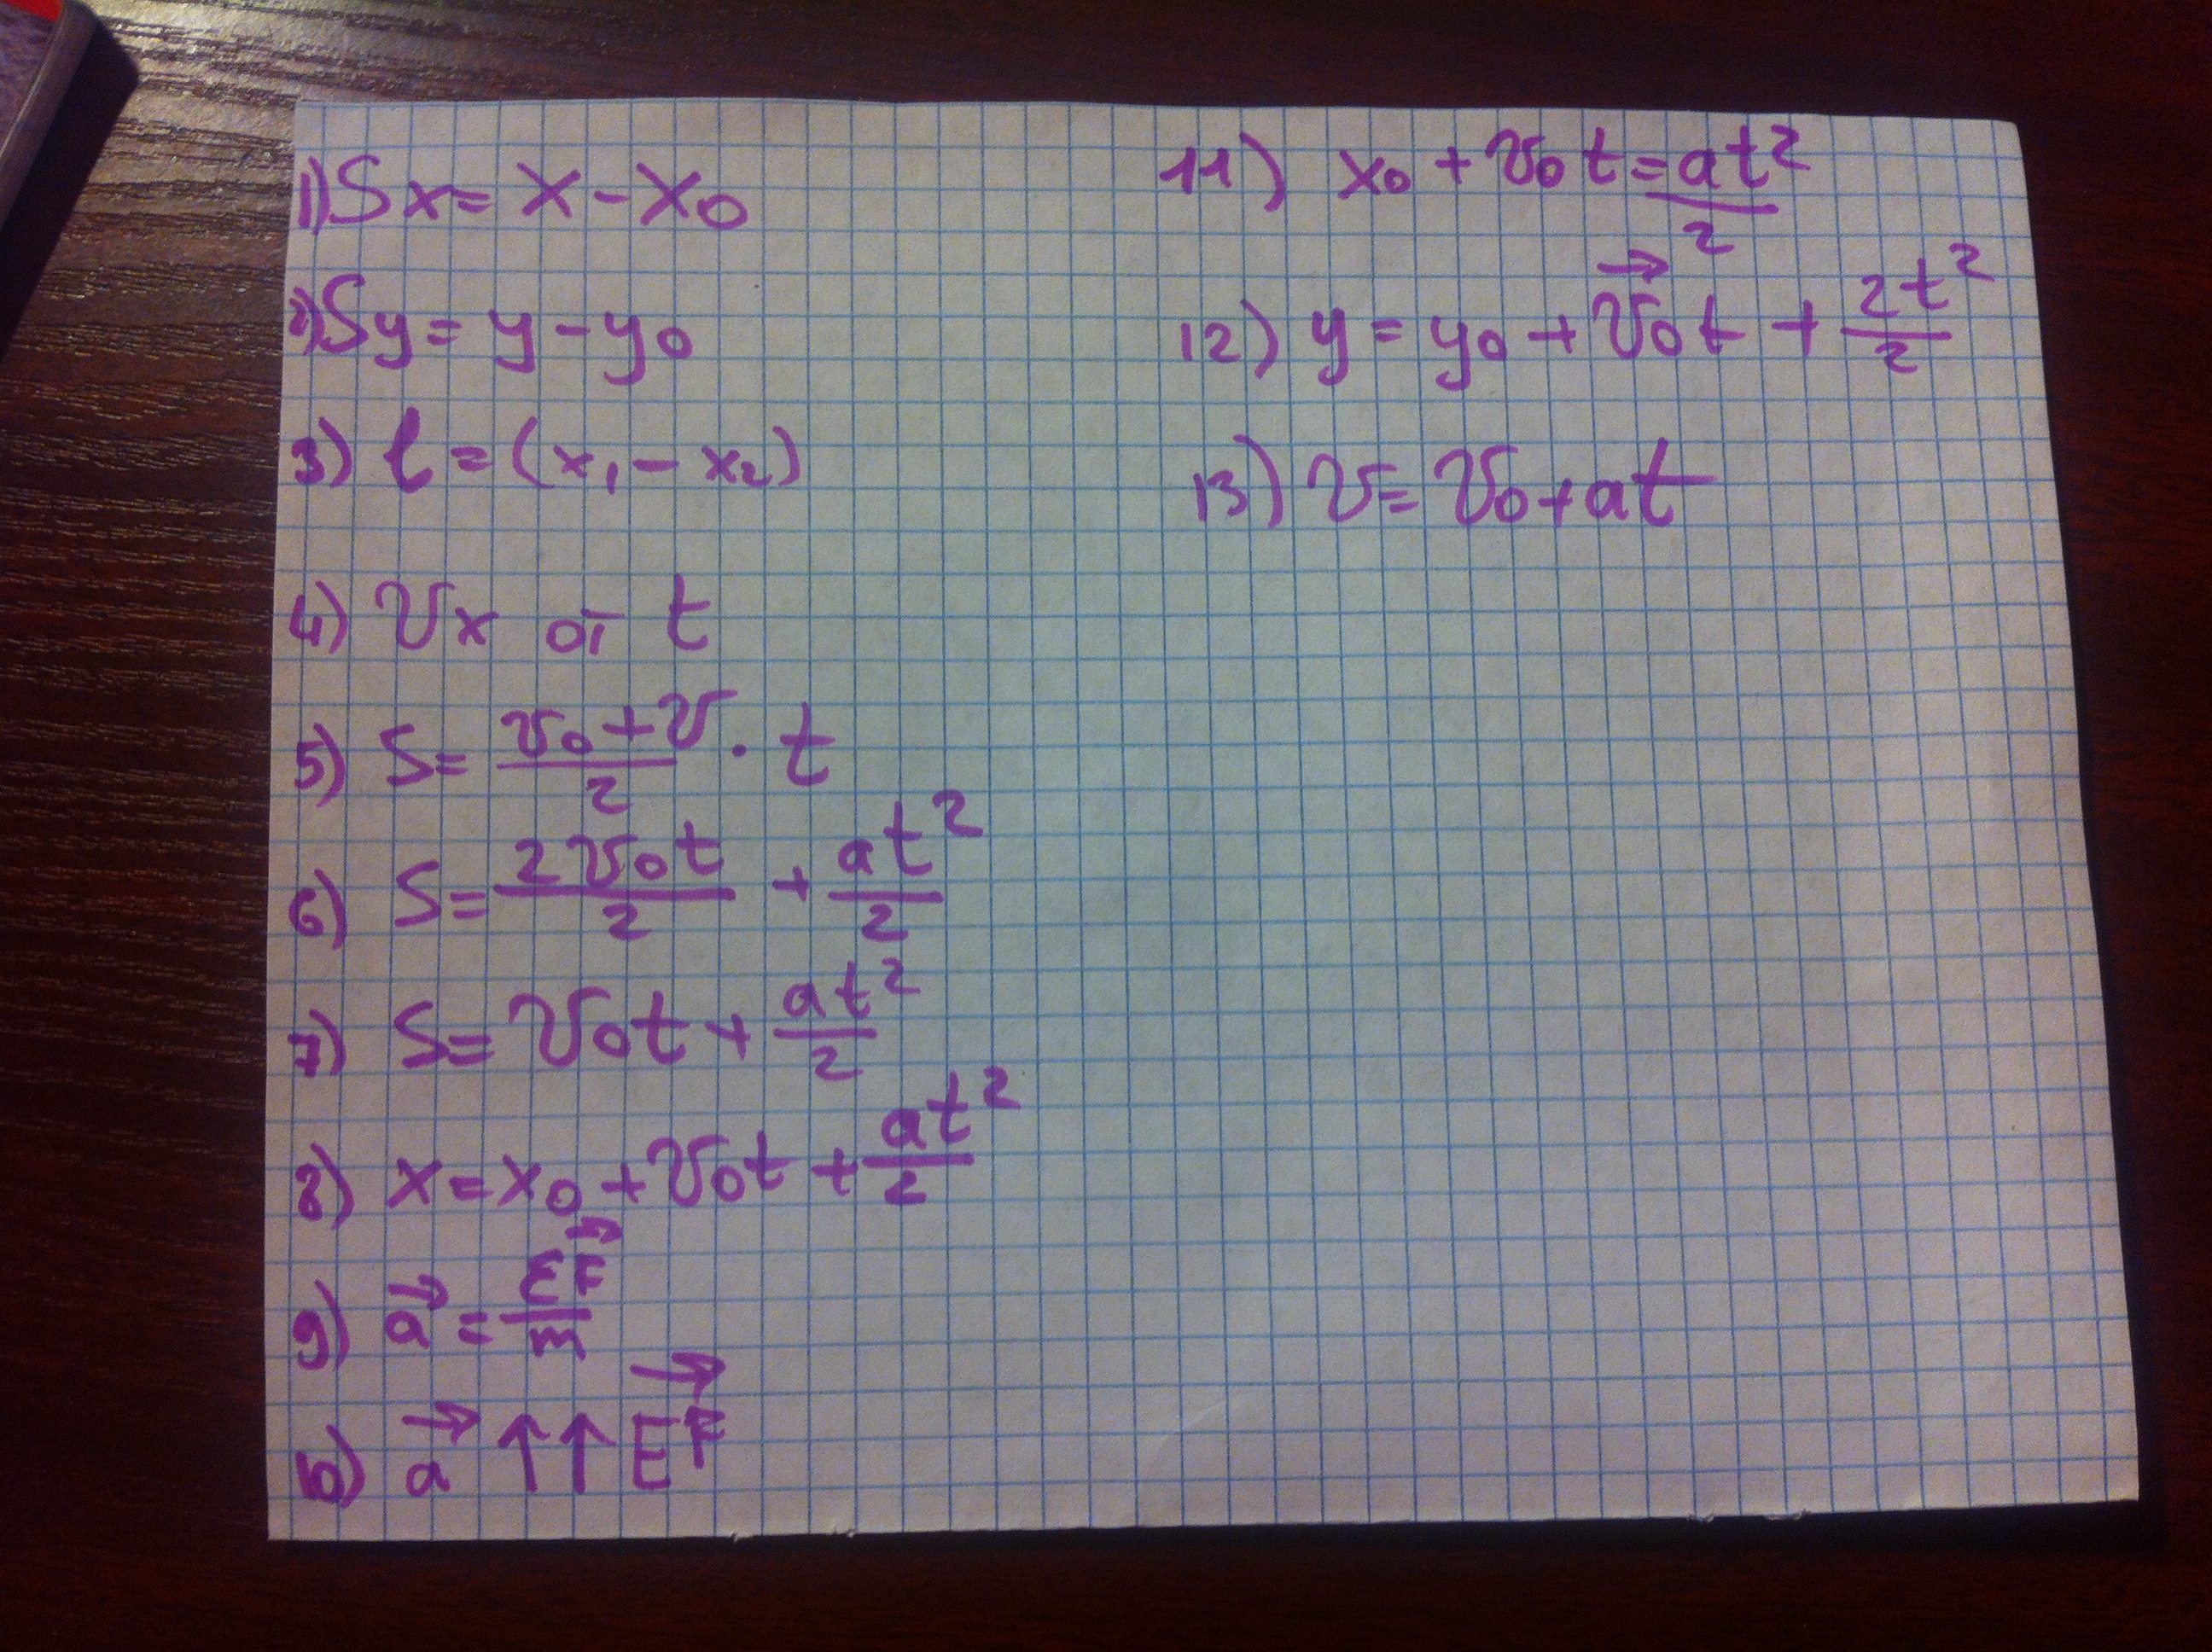 1) Sx = x - x₀
2) Sy = y - y₀
3) l = (x₁ - x₂)
4) υx от t
5) S = (υ₀ + υ)/2 · t
6) S = 2υ₀t/2 + at²/2
7) S = υ₀t + at²/2
8) x = x₀ + υ₀t + at²/2
9) a⃗ = ΣF⃗/m
10) a⃗ ↑↑ EF⃗
11) x₀ + υ₀t = at²/2
12) y = y₀ + υ⃗₀t + 2t²/2
13) υ = υ₀ + at